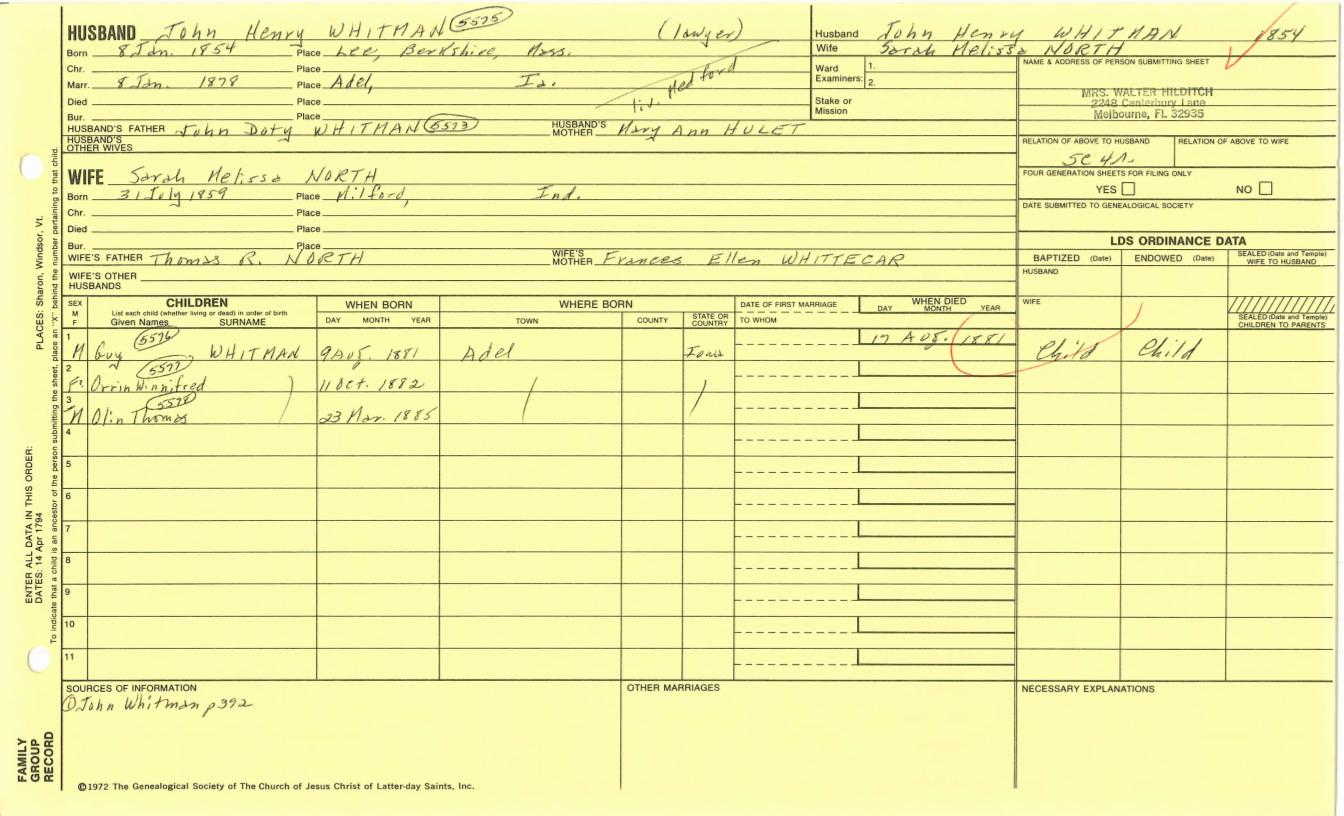 HUSBAND John Henry WHITMAN 5575 (lawyer)
Born 8 Jan. 1854 Place Lee, Berkshire, Mass.
Chr. Place
Marr. 8 Jan. 1878 Place Adel, Ia.
liv. Medford
Died Place
Bur. Place
HUSBAND'S FATHER John Doty WHITMAN 5573 HUSBAND'S MOTHER Mary Ann HULET
HUSBAND'S OTHER WIVES
WIFE Sarah Melissa NORTH
Born 31 July 1859 Place Milford, Ind.
Chr. Place
Died Place
Bur. Place
WIFE'S FATHER Thomas R. NORTH WIFE'S MOTHER Frances Ellen WHITTECAR
WIFE'S OTHER HUSBANDS
Husband John Henry WHITMAN 1854
Wife Sarah Melissa NORTH
Ward Examiners: 1.
2.
Stake or Mission
NAME & ADDRESS OF PERSON SUBMITTING SHEET
MRS. WALTER HILDITCH
2248 Canterbury Lane
Melbourne, FL 32935
RELATION OF ABOVE TO HUSBAND RELATION OF ABOVE TO WIFE
FOUR GENERATION SHEETS FOR FILING ONLY
YES NO
DATE SUBMITTED TO GENEALOGICAL SOCIETY
LDS ORDINANCE DATA
BAPTIZED (Date) ENDOWED (Date) SEALED (Date and Temple) WIFE TO HUSBAND
HUSBAND
WIFE
SEALED (Date and Temple) CHILDREN TO PARENTS
SEX M F
CHILDREN
List each child (whether living or dead) in order of birth
Given Names SURNAME
WHEN BORN
DAY MONTH YEAR
WHERE BORN
TOWN COUNTY STATE OR COUNTRY
DATE OF FIRST MARRIAGE
TO WHOM
WHEN DIED
DAY MONTH YEAR
1 M Guy 5576 WHITMAN 9 Aug. 1881 Adel Iowa 17 Aug. 1881 Child Child
2 F? Orrin Winnifred 5577 11 Oct. 1882
3 M Olin Thomas 5578 23 Mar. 1885
4
5
6
7
8
9
10
11
SOURCES OF INFORMATION
① John Whitman p392
OTHER MARRIAGES
NECESSARY EXPLANATIONS
©1972 The Genealogical Society of The Church of Jesus Christ of Latter-day Saints, Inc.
FAMILY GROUP RECORD
ENTER ALL DATA IN THIS ORDER:
DATES: 14 Apr 1794 PLACES: Sharon, Windsor, Vt.
To indicate that a child is an ancestor of the person submitting the sheet, place an "X" behind the number pertaining to that child.